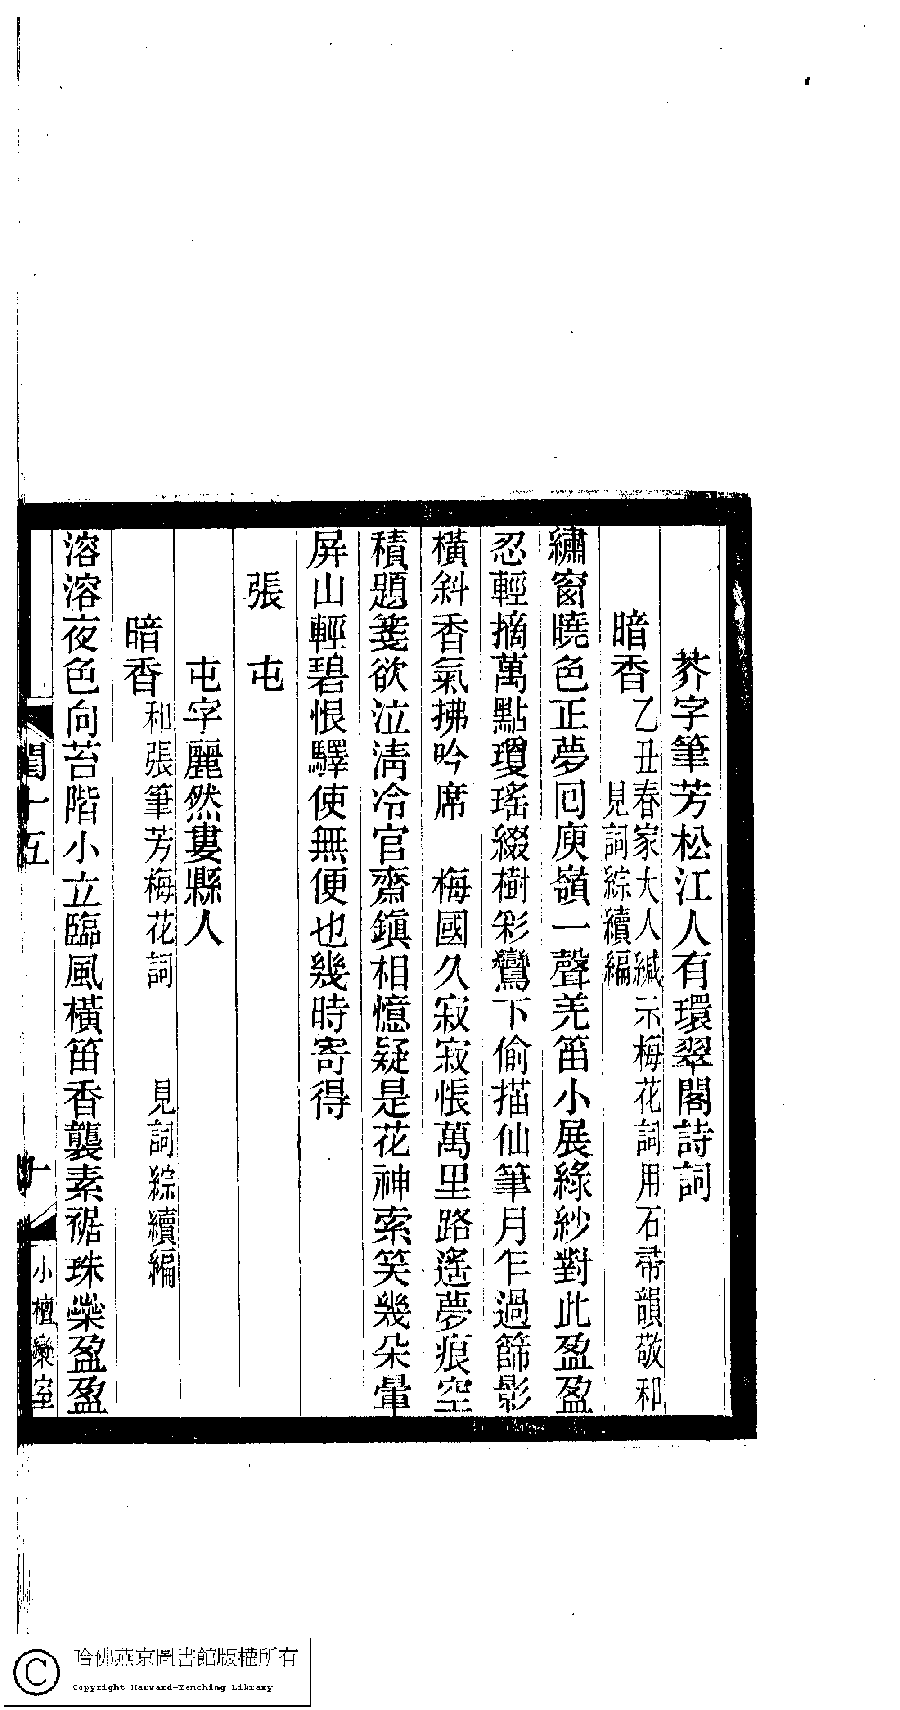 芥字筆芳松江人有環翠閣詩詞
暗香 乙丑春家大人緘示梅花詞用石帚韻敬和
見詞綜續編
繡窗曉色正夢回庾嶺一聲羌笛小展綠紗對此盈盈
忍輕摘萬點瓊瑤綴樹彩鸞下偷描仙筆月乍過篩影
橫斜香氣拂吟席　梅國久寂寂悵萬里路遙夢痕空
積題箋欲泣淸冷官齋鎭相憶疑是花神索笑幾朵暈
屏山輕碧恨驛使無便也幾時寄得
張　屯
屯字麗然婁縣人
暗香 和張筆芳梅花詞　見詞綜續編
溶溶夜色向苔階小立臨風橫笛香襲素裾珠蘂盈盈
閨十五
一
小檀欒室
哈佛燕京圖書館版權所有
Copyright Harvard-Yenching Library